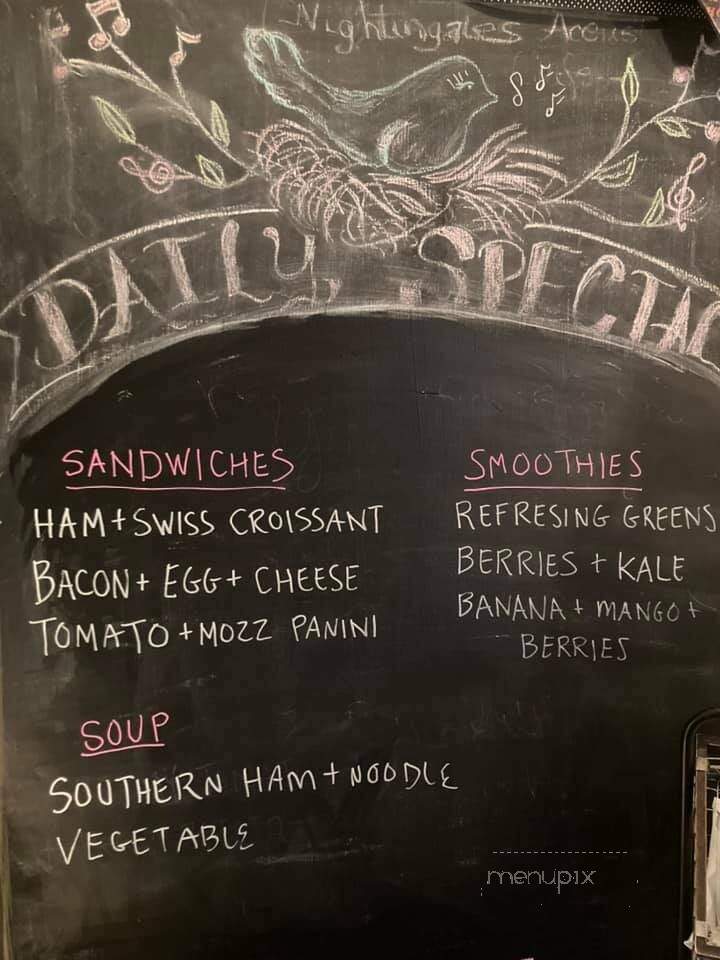 Nightingales
DAILY SPECIAL
SANDWICHES
HAM + SWISS CROISSANT
BACON + EGG + CHEESE
TOMATO + MOZZ PANINI
SMOOTHIES
REFRESING GREENS
BERRIES + KALE
BANANA + MANGO +
BERRIES
SOUP
SOUTHERN HAM + NOODLE
VEGETABLE
menupix